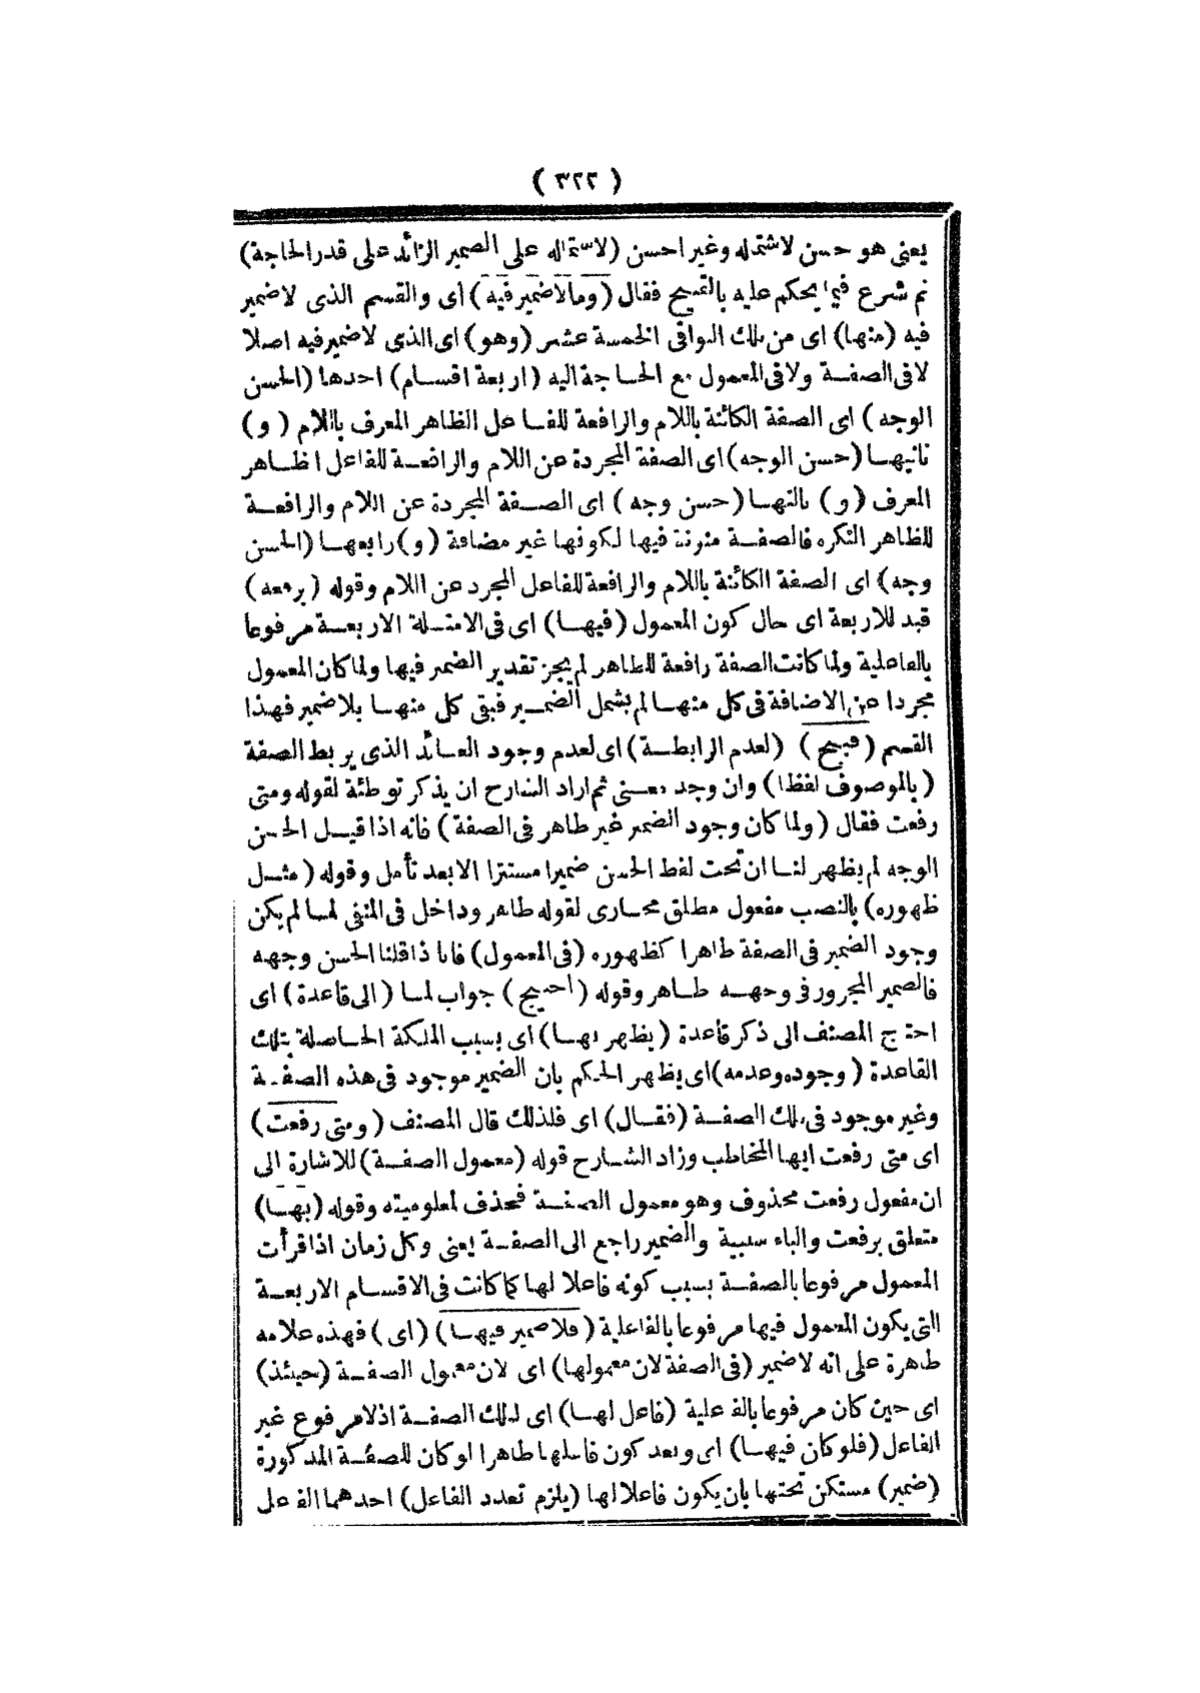 ( ٣٢٢ )
يعنى هو حسن لاشتماله وغير احسن (لاشتماله على الضمير الزائد على قدر الحاجة)
ثم شرع فيما يحكم عليه بالقبيح فقال (ومالا ضمير فيه) اى والقسم الذى لاضمير
فيه (منها) اى من تلك البواقى الخمسة عشر (وهو) اى الذى لاضمير فيه اصلا
لافى الصفة ولافى المعمول مع الحاجة اليه (اربعة اقسام) احدها (الحسن
الوجه) اى الصفة الكائنة باللام والرافعة للفاعل الظاهر المعرف باللام (و)
ثانيها (حسن الوجه) اى الصفة المجردة عن اللام والرافعة للفاعل الظاهر
المعرف (و) ثالثها (حسن وجه) اى الصفة المجردة عن اللام والرافعة
للظاهر النكره فالصفة منونة فيها لكونها غير مضافة (و) رابعها (الحسن
وجه) اى الصفة الكائنة باللام والرافعة للفاعل المجرد عن اللام وقوله (برفعه)
قيد للاربعة اى حال كون المعمول (فيها) اى فى الامثلة الاربعة مرفوعا
بالفاعلية ولما كانت الصفة رافعة للظاهر لم يجز تقدير الضمير فيها ولما كان المعمول
مجردا عن الاضافة فى كل منها لم يشمل الضمير فبقى كل منها بلاضمير فهذا
القسم (قبيح) (لعدم الرابطة) اى لعدم وجود العائد الذى يربط الصفة
(بالموصوف لفظا) وان وجد معنى ثم اراد الشارح ان يذكر توطئة لقوله ومتى
رفعت فقال (ولما كان وجود الضمير غير ظاهر فى الصفة) فانه اذا قيل الحسن
الوجه لم يظهر لنا ان تحت لفظ الحسن ضميرا مستترا الا بعد تأمل وقوله (مثل
ظهوره) بالنصب مفعول مطلق مجازى لقوله ظاهر وداخل فى المنفى لما لم يكن
وجود الضمير فى الصفة ظاهرا كظهوره (فى المعمول) فانا اذا قلنا الحسن وجهه
فالضمير المجرور فى وجهه ظاهر وقوله (احتيج) جواب لما (الى قاعدة) اى
احتاج المصنف الى ذكر قاعدة (يظهر بها) اى بسبب الملكة الحاصلة بتلك
القاعدة (وجوده وعدمه) اى يظهر الحكم بان الضمير موجود فى هذه الصفة
وغير موجود فى تلك الصفة (فقال) اى فلذلك قال المصنف (ومتى رفعت)
اى متى رفعت ايها المخاطب وزاد الشارح قوله (معمول الصفة) للاشارة الى
ان مفعول رفعت محذوف وهو معمول الصفة فحذف لمعلوميته وقوله (بها)
متعلق برفعت والباء سببية والضمير راجع الى الصفة يعنى وكل زمان اذا قرأت
المعمول مرفوعا بالصفة بسبب كونه فاعلا لها كما كانت فى الاقسام الاربعة
التى يكون المعمول فيها مرفوعا بالفاعلية (فلا ضمير فيها) (اى) فهذه علامه
ظاهرة على انه لاضمير (فى الصفة لان معمولها) اى لان معمول الصفة (حينئذ)
اى حين كان مرفوعا بالفاعلية (فاعل لها) اى لتلك الصفة اذلا مرفوع غير
الفاعل (فلو كان فيها) اى وبعد كون فاعلها ظاهرا لو كان للصفة المذكورة
(ضمير) مستكن تحتها بان يكون فاعلا لها (يلزم تعدد الفاعل) احدهما الفاعل